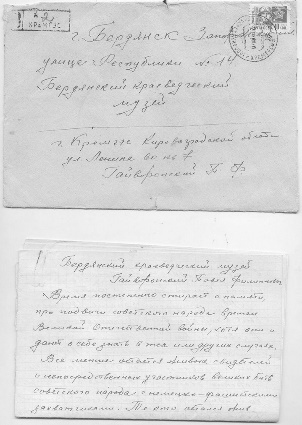 г. Бердянск Запо
улице Республики № 14
Бердянский краеведческий
музей
г. Кремгэс Кировоградской области
ул Ленина 7
Гайворонский Б Ф
Бердянский краеведческий музей
Гайворонский
Время постепенно стирает с памяти
про подвиги советского народа времен
Великой Отечественной войны, хотя они и
дают о себе знать в тех или других случаях.
Все меньше остается живых свидетелей
и непосредственных участников великих битв
советского народа с немецко-фашистскими
захватчиками. остался жив